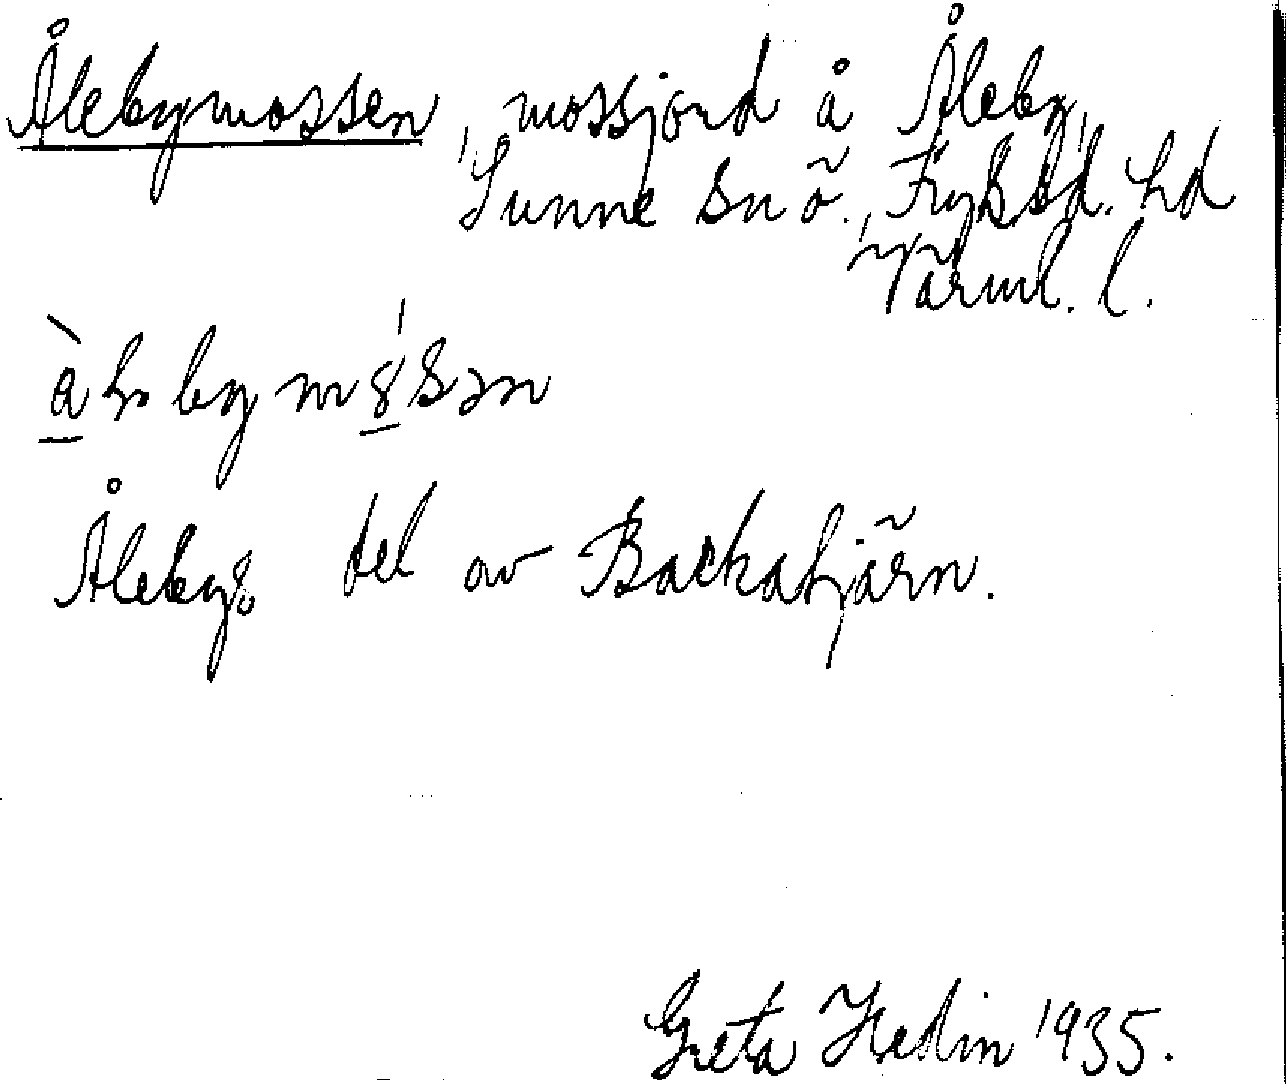 Ålebymossen, mossjord å Åleby,
Sunne snö., Fryksd. hd
Värml. l.
Ålebys del av Backatjärn.
Greta Hedin 1935.